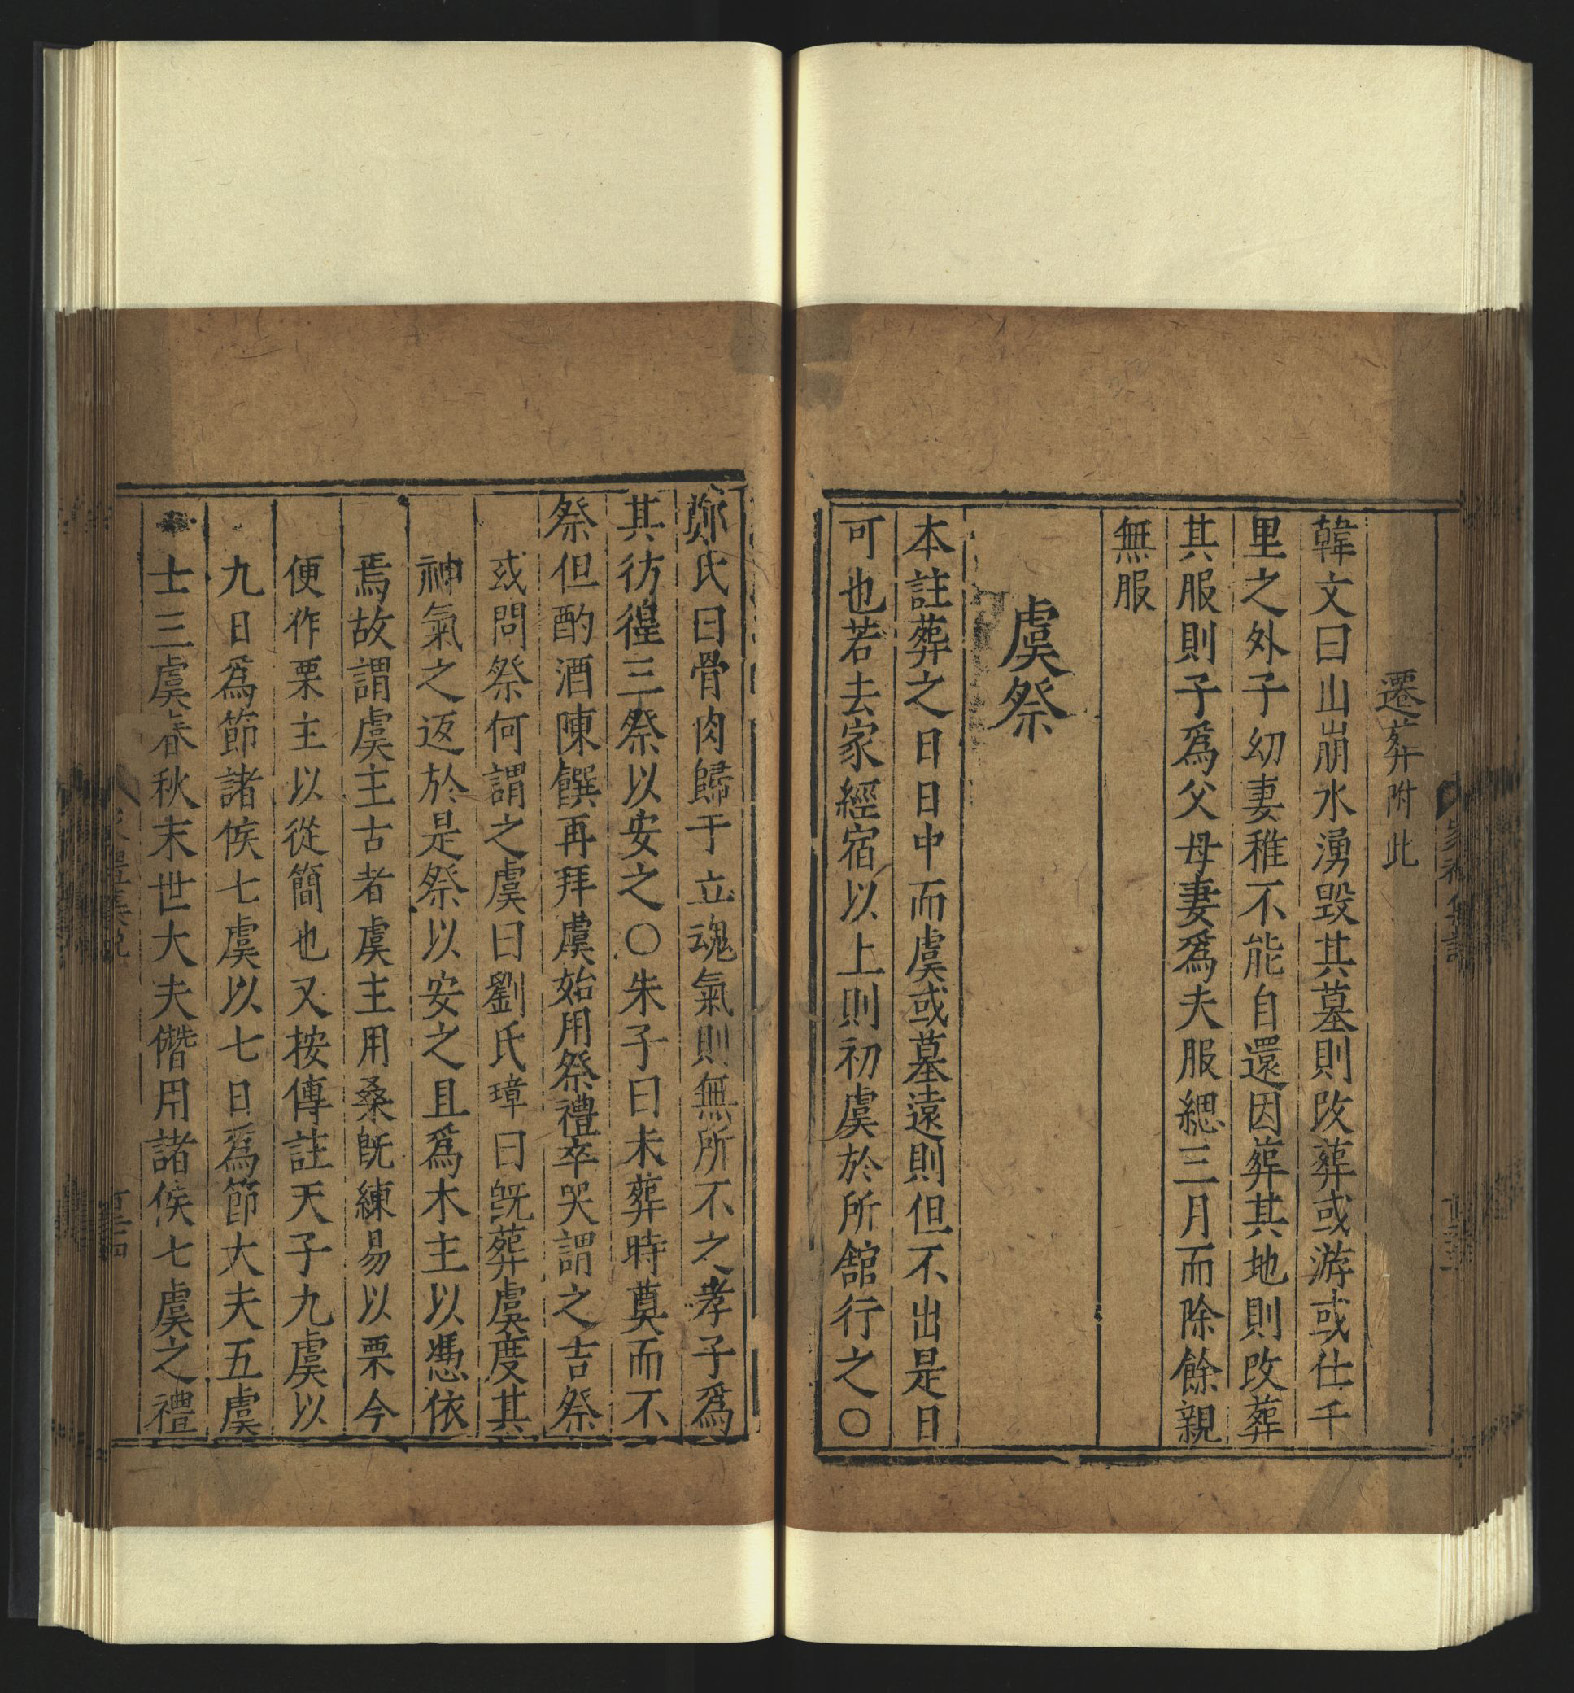 遷葬附此
韓文曰山崩水湧毀其墓則改葬或游或仕千
里之外子幼妻稚不能自還因葬其地則改葬
其服則子爲父母妻爲夫服緦三月而除餘親
無服
虞祭
本註葬之日日中而虞或墓遠則但不出是日
可也若去家經宿以上則初虞於所舘行之〇
鄭氏曰骨肉歸于立魂氣則無所不之孝子爲
其彷徨三祭以安之〇朱子曰未葬時奠而不
祭但酌酒陳饌再拜虞始用祭禮卒哭謂之吉祭
或問祭何謂之虞曰劉氏璋曰旣葬虞度其
神氣之返於是祭以安之且爲木主以憑依
焉故謂虞主古者虞主用桑旣練易以栗今
便作栗主以從簡也又按傳註天子九虞以
九日爲節諸侯七虞以七日爲節大夫五虞
士三虞春秋末世大夫僭用諸侯七虞之禮